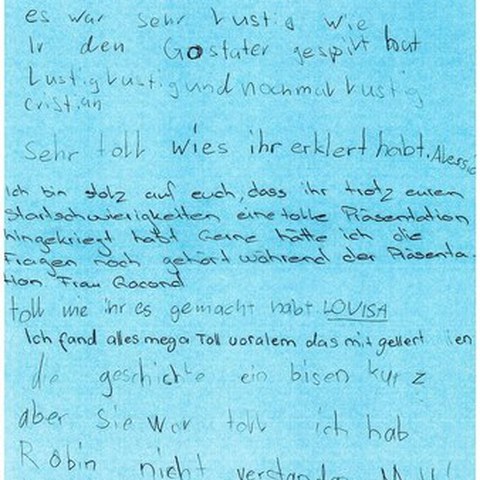 es war sehr Lustig wie
Ir den Gostater gespilt hat
Lustig Lustig und nochmal Lustig
cristian
Sehr toll wies ihr erklert habt. Alessio
Ich bin stolz auf euch, dass ihr trotz euren
Startschwierigkeiten eine tolle Präsentation
hingekriegt habt Gerne hätte ich die
Fragen noch gehört während der Präsenta-
tion Frau Gacond
toll wie ihr es gemacht habt LOUISA
Ich fand alles mega Toll voralem das mit gellert ien
die geschichte ein bisen kurz
aber Sie war toll ich hab
Robin nicht verstanden